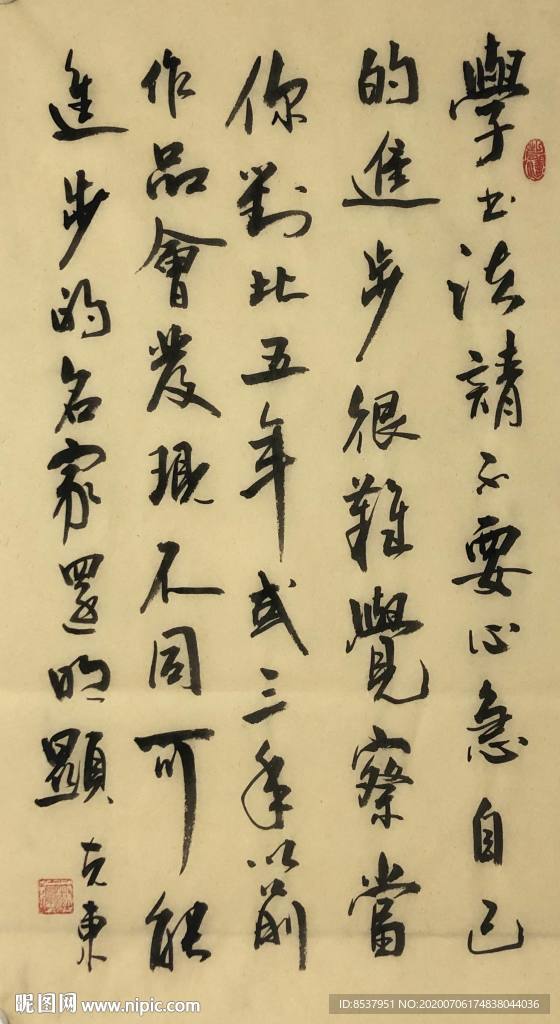 學書法請不要心急自己
的進步很難覺察當
你對比五年或三年以前
作品會發現不同可能
進步的名家還明顯
克東
昵图网 www.nipic.com
ID:8537951 NO:20200706174838044036